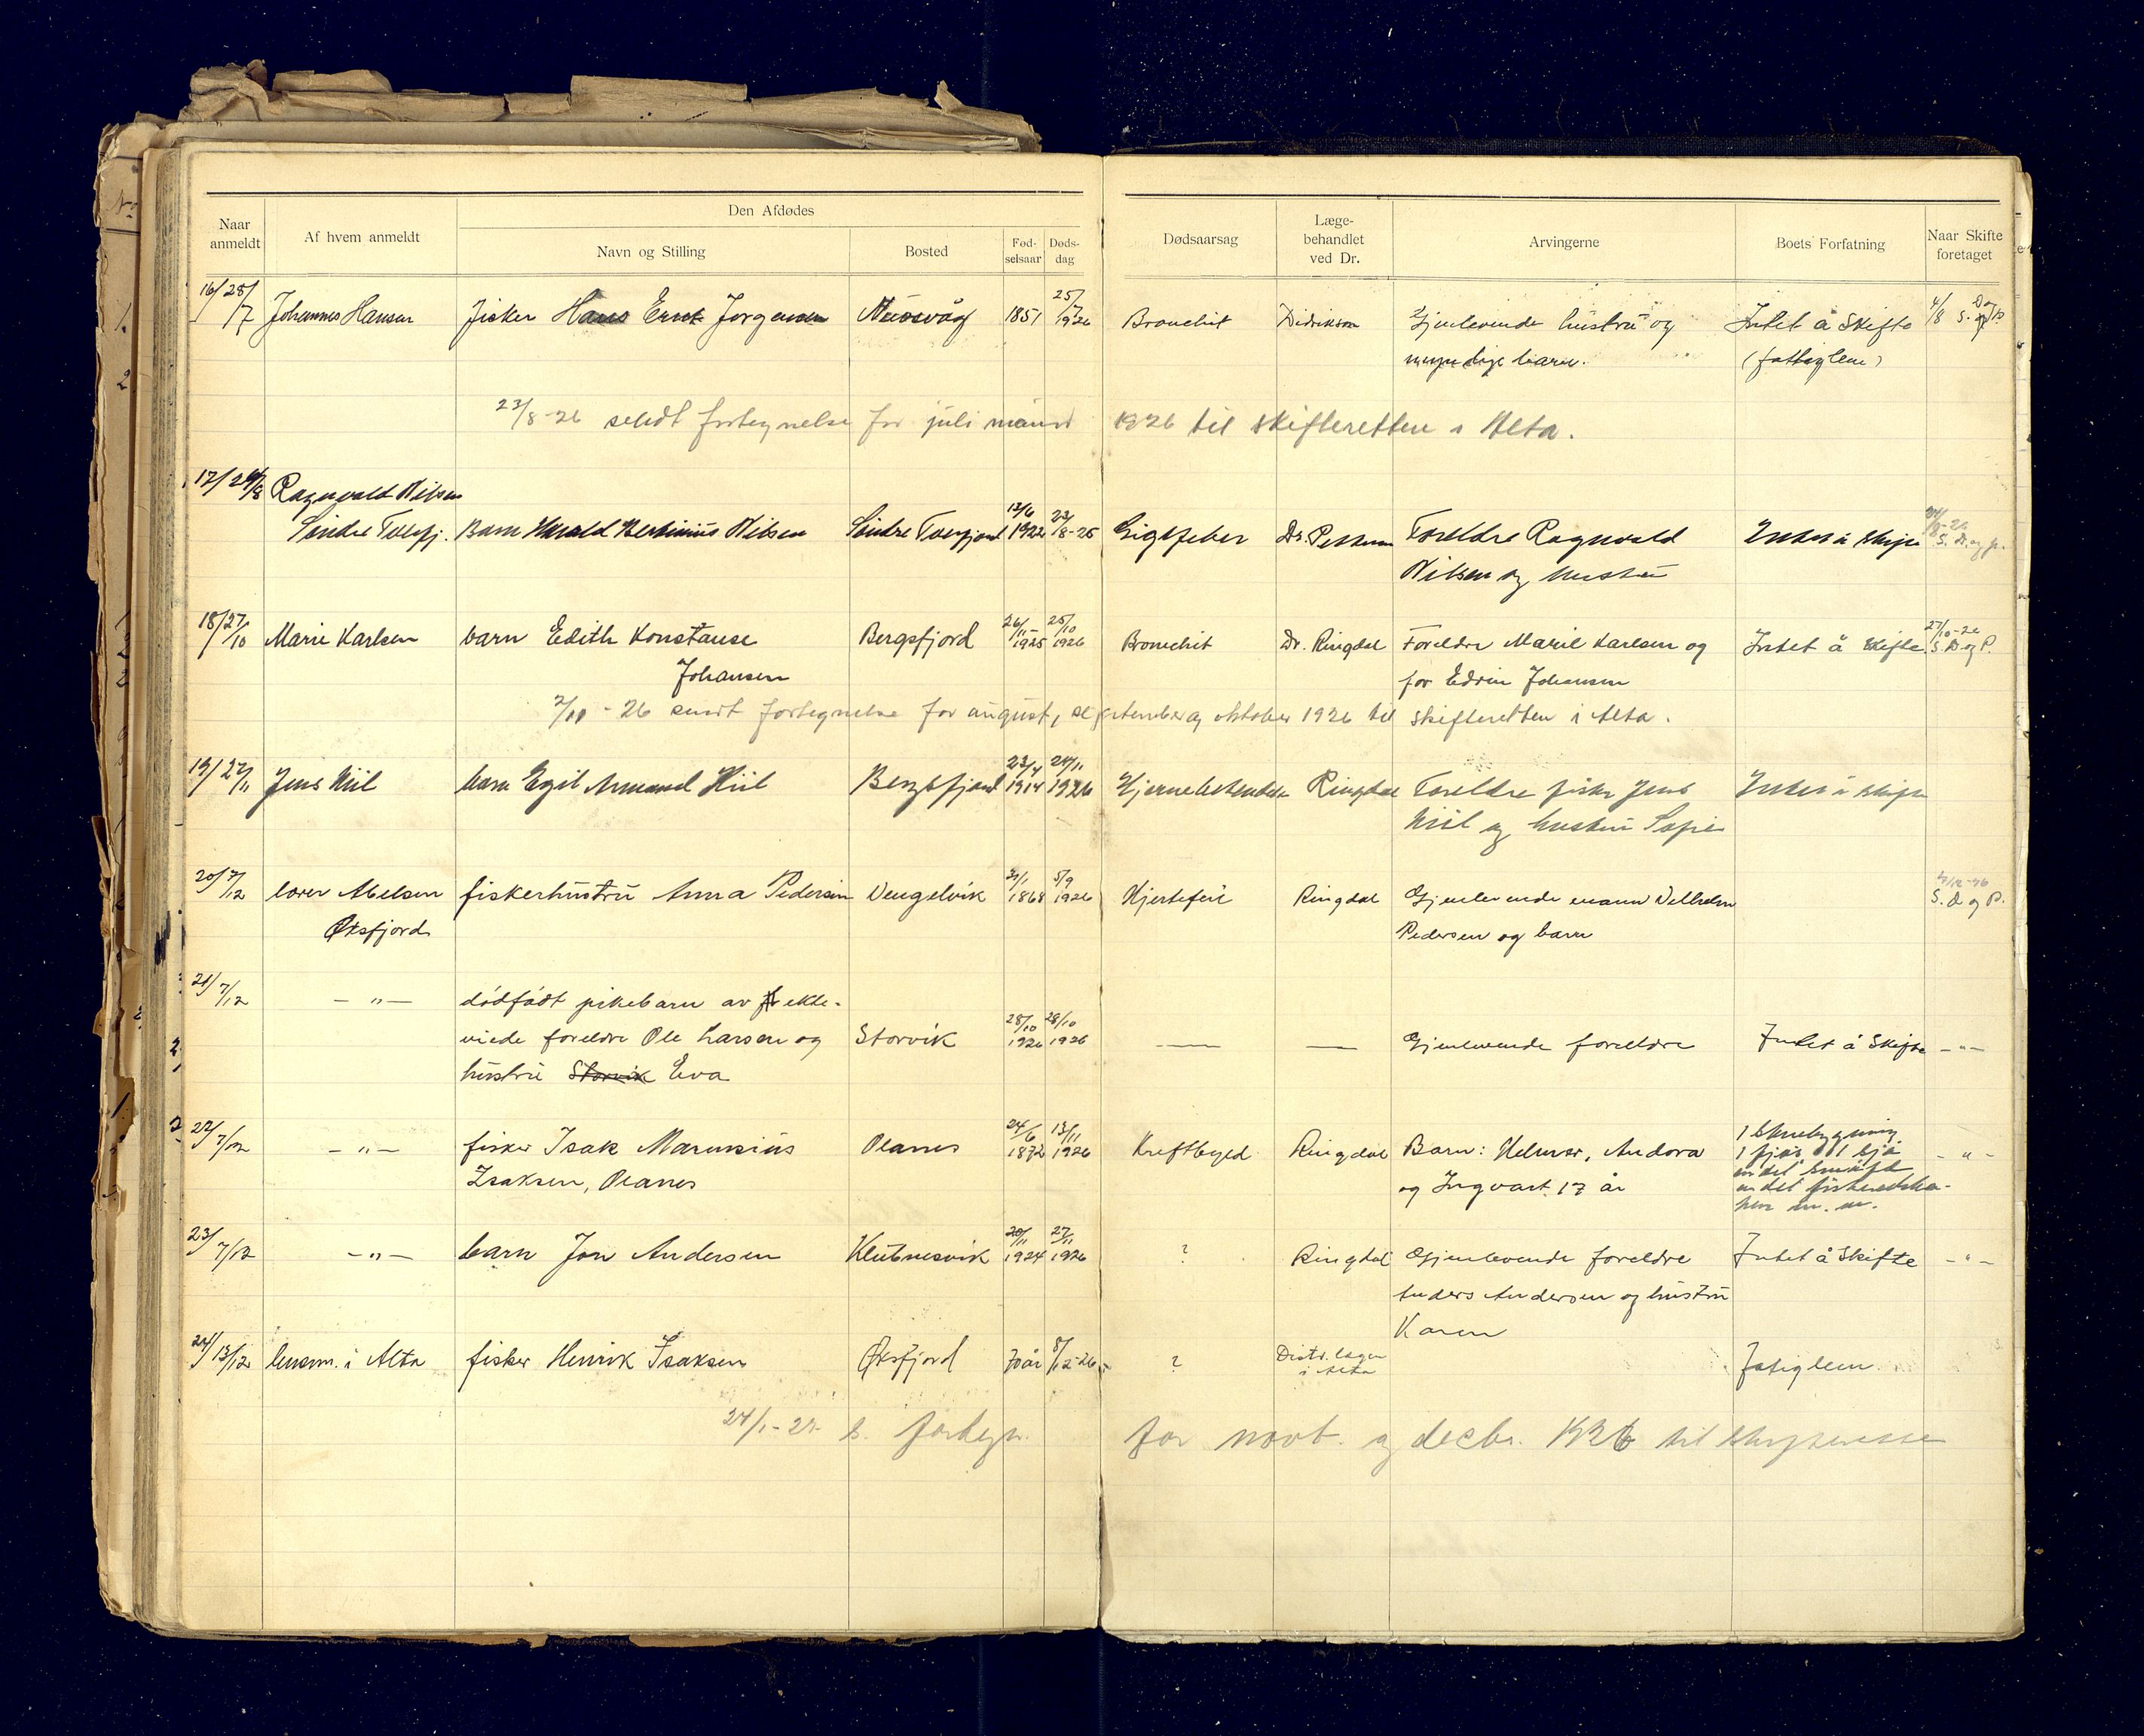 Den Afdødes
Naar anmeldt
Af hvem anmeldt
Navn og Stilling
Bosted
Fød-selsaar
Døds-dag
Dødsaarsag
Læge-behandlet ved Dr.
Arvingerne
Boets Forfatning
Naar Skifte foretaget
16/ 28/7 Johannes Hansen fisker Hans Ernt Jorgensen 1851 25/7 1926 Bronchit Didriksen Gjenlevende hustru og Intet å Skifte 4/8 S. D og P.
myndige barn. (fattiglem)
23/8-26 sendt fortegnelse for juli måned 1926 til skifteretten i Alta.
17/ Ragnvald Nilsen
Søndre Tverfj. Barn Harald Nilsen Søndre Tverfjord 13/6 1922 23/8-26 Gigtfeber Dr. Foreldre Ragnvald Intet å skifte S. D. og P.
Nilsen og hustru
18/ 27/10 Marie Karlsen barn Edith Konstanse Bergsfjord 26/11 1925 25/10 1926 Bronchit Dr. Ringdal Foreldre Marie Karlsen og Intet å Skifte 27/10-26 S. D. og P.
Johansen for Edvin Johansen
2/11-26 sendt fortegnelse for august, september og oktober 1926 til skifteretten i Alta.
19/ 27/11 Jens Hiil barn Egil Armand Hiil Bergsfjord 23/4 1914 24/11 1926 Ringdal Foreldre fisker Jens Intet å skifte
Hiil og hustru Sofie
20/ 7/12 lærer Abelsen fiskerhustru Anna Pedersen Vengelvik 31/1 1868 5/9 1926 Hjertefeil Ringdal Gjenlevende mann Vilhelm 7/12-26 S. D og P.
Øksfjord Pedersen og barn
21/ 7/12 - " - dödfödt pikebarn av ekte-
viede foreldre Ole Larsen og Storvik 28/10 1926 28/10 1926 — — Gjenlevende foreldre Intet å Skifte - " -
hustru Storvik Eva
22/ 7/12 - " - fisker Isak Marensius Olanes 24/6 1872 13/11 1926 Kreftbyld Ringdal Barn: Helmer, Andora 1 1 fjös 1 sjå - " -
Isaksen, Olanes og Ingvart 17 år en del småfe en del fiskeredska-
per m. m.
23/ 7/12 - " - barn Jon Andersen Klubnesvik 20/11 1924 27/11 1926 ? Ringdal Gjenlevende foreldre Intet å Skifte - " -
Anders Andersen og hustru
Karen
24/ 13/12 lensm. i Alta fisker Henrik Isaksen Øksfjord 70 år 8/12-26 ? Distr. lægen i Alta Fatiglem.
24/1-27 s. fortegn. for novb. og decbr. 1926 til skifteretten